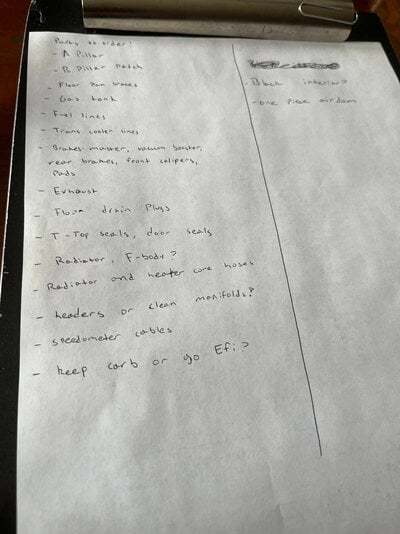 Parts to order:
- A Pillar
- B Pillar Patch
- Floor Pan braces
- Gas tank
- Fuel lines
- Trans cooler lines
- Brakes- master, vacuum booster,
rear brakes, front calipers,
Pads
- Exhaust
- Floor drain Plugs
- T-Top seals, door seals
- Radiator, F-body?
- Radiator and heater core hoses
- headers or clean manifolds?
- speedometer cables
- keep carb or go Efi?
- Black interior?
- one Piece airdam